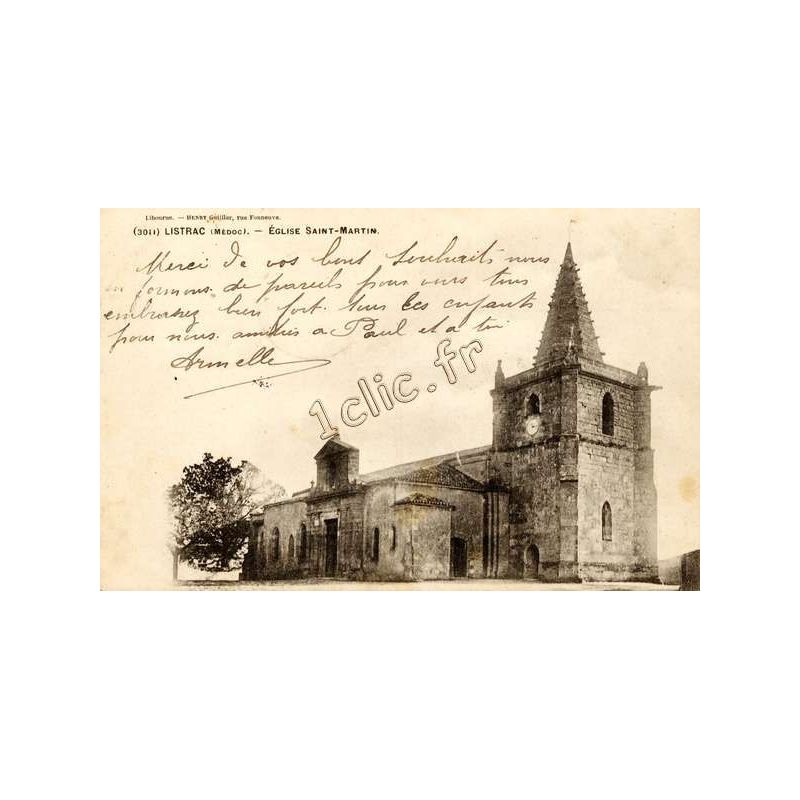 Libourne. — HENRY Guillier, rue Fonneuve.
(3011) LISTRAC (MÉDOC). — ÉGLISE SAINT-MARTIN.
Merci de vos bons souhaits nous
en formons de pareils pour vous tous
embrassez bien fort tous les enfants
pour nous. amitiés a Paul et a toi
Armelle
1clic.fr